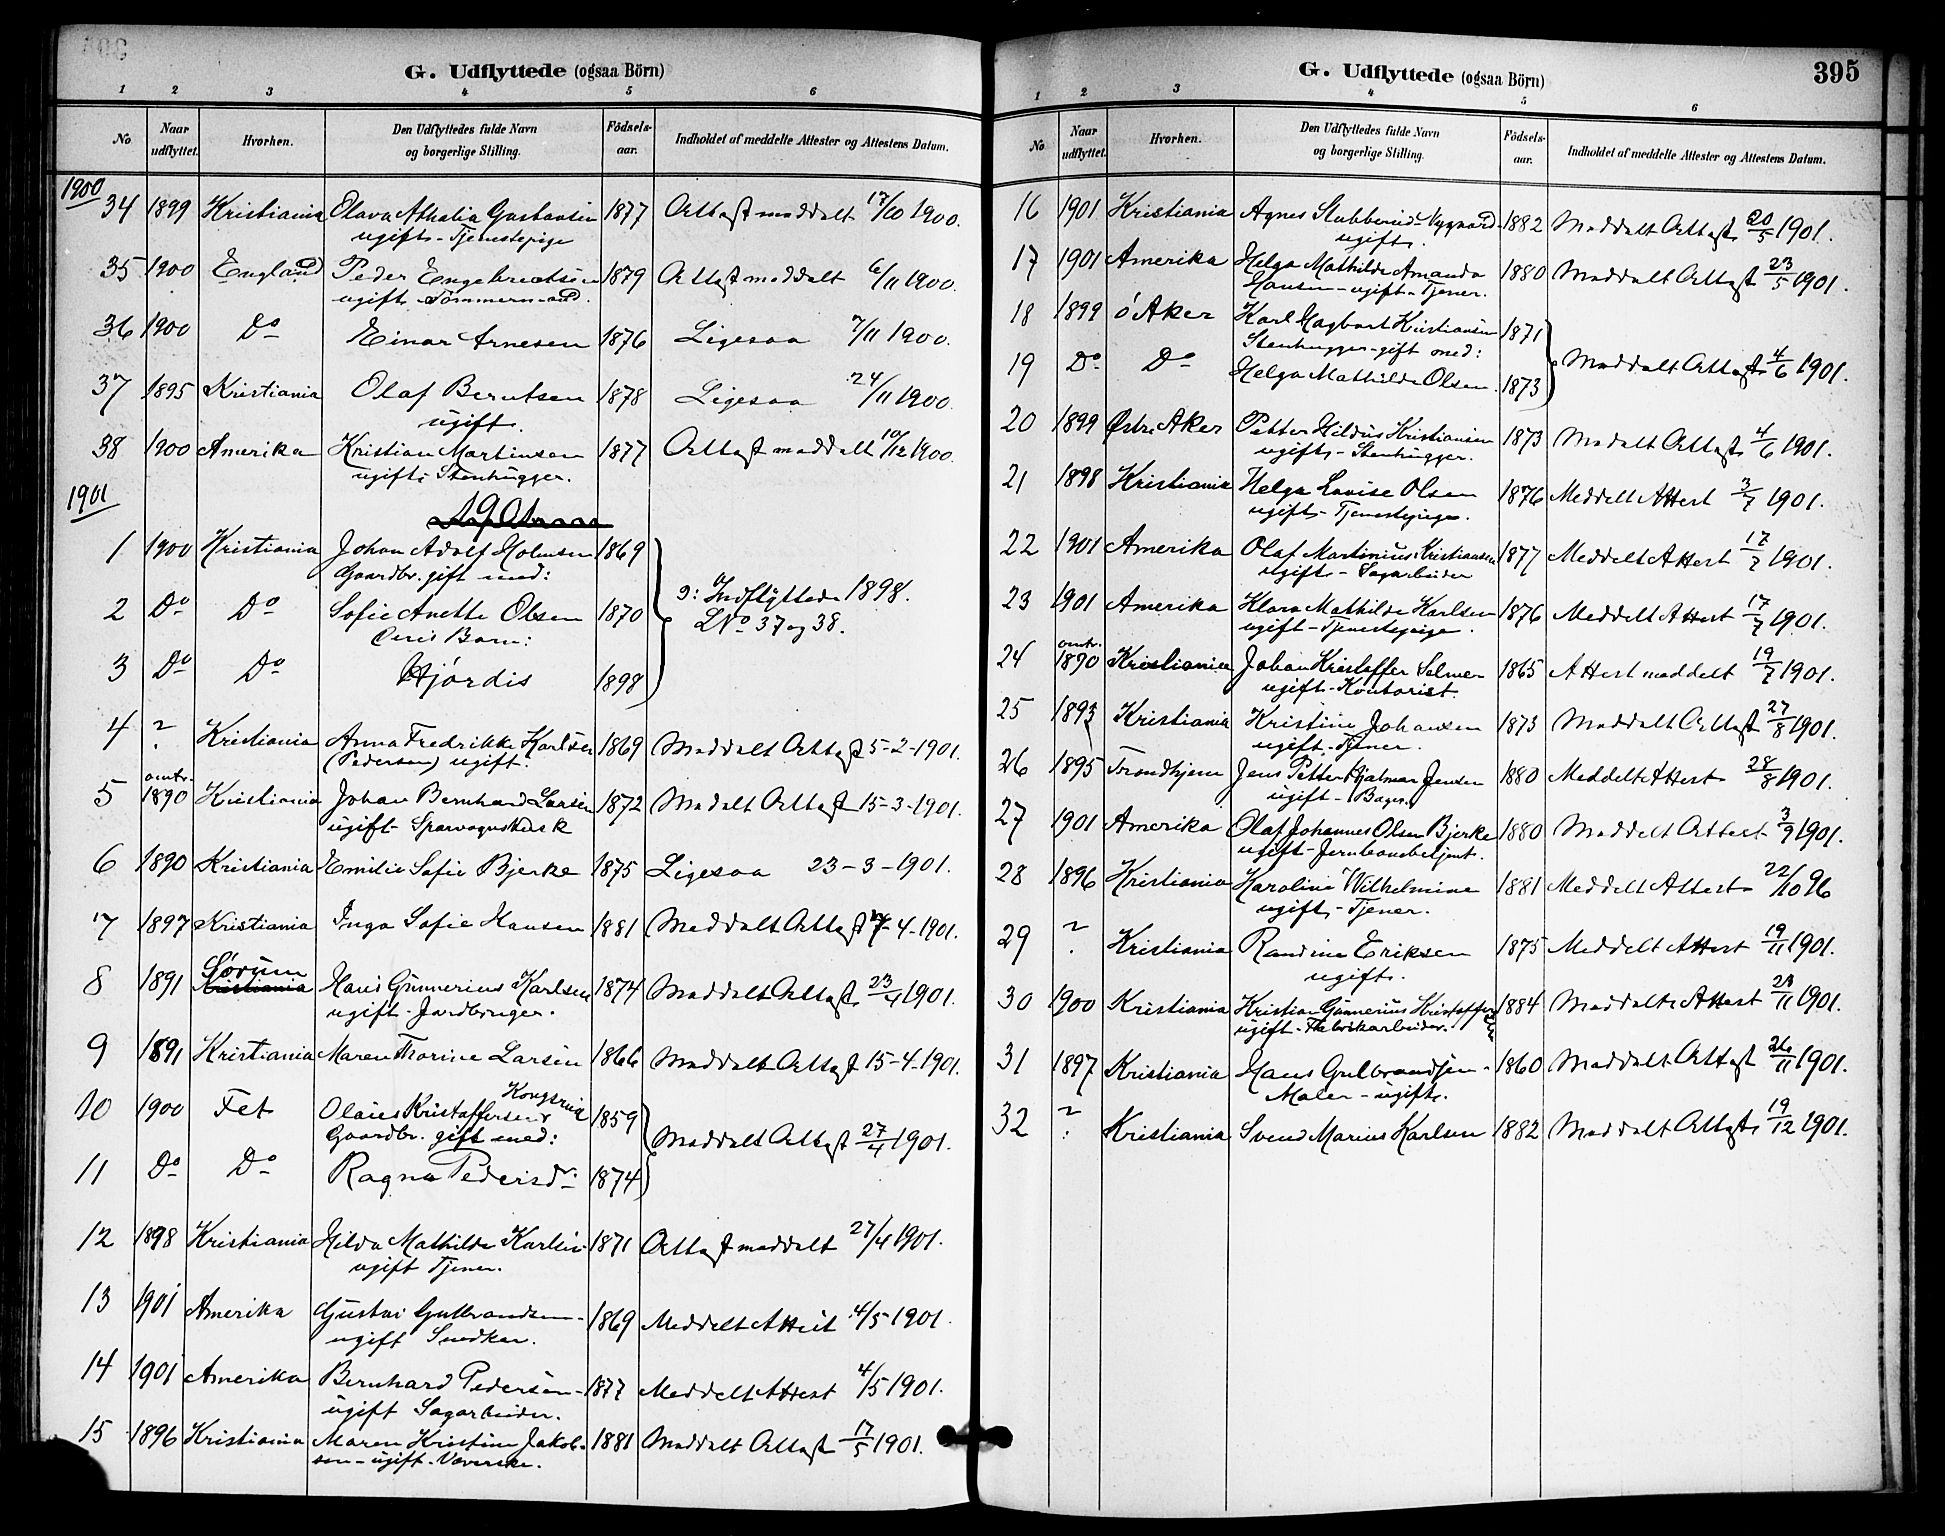 G. Udflyttede (ogsaa Börn)
1 2 3 4 5 6
No Naar udflyttet. Hvorhen. Den Udflyttedes fulde Navn og borgerlige Stilling. Födsels-aar. Indholdet af meddelte Attester og Attestens Datum.
1900
34 1899 Kristiania Olava Athalia Gustavsen 1877 Attest meddelt 17/10 1900.
ugift - Tjenestepige
35 1900 England Peder Engebretsen 1879 Attest meddelt 6/11 1900.
ugift Tömmermand.
36 1900 Do Einar Arnesen 1876 Ligesaa 7/11 1900.
37 1895 Kristiania Olaf Berntsen 1878 Ligesaa 24/11 1900.
ugift.
38 1900 Amerika Kristian Martinsen 1877 Attest meddelt 10/12 1900.
ugift; Stenhugger.
1901
1 1900 Kristiania Johan Adolf Holmsen 1869
Gaardbr. gift med:
2 Do Do Sofie Anette Olsen 1870 ɔ: Indflyttede 1898. LNo 37 og 38.
Deres Barn:
3 Do Do Hjördis 1898
4 ? Kristiania Anna Fredrikke Karlsen 1869 Meddelt Attest 5-2-1901.
(Pedersen) ugift.
5 omtr. 1890 Kristiania Johan Bernhard Larsen 1872 Meddelt Attest 15-3-1901.
ugift - Sporvognskusk
6 1890 Kristiania Emilie Sofie Bjerke 1875 Ligesaa 23-3-1901.
7 1897 Kristiania Inga Sofie Hansen 1881 Meddelt Attest -4-1901.
8 1891 Sörum Kristiania Hans Gunnerius Karlsen 1874 Meddelt Attest 23/4 1901.
ugift - Jordbruger.
9 1891 Kristiania Maren Thorine Larsen 1866 Meddelt Attest 15-4-1901.
10 1900 Fet Olaus Kristoffersen Kongsrud 1859
Gaardbr. gift med: Meddelt Attest 27/4 1901.
11 Do Do Ragna Pedersd. 1874
12 1898 Kristiania Hilda Mathilde Karlsen 1871 Attest meddelt 27/4 1901.
ugift Tjener.
13 1901 Amerika Gustav Gulbrandsen 1869 Meddelt Attest 4/5 1901.
ugift Snedker.
14 1901 Amerika Bernhard Pedersen 1877 Meddelt Attest 4/5 1901.
ugift Sagarbeider.
15 1896 Kristiania Maren Kristine Jakob- 1881 Meddelt Attest 17/5 1901.
sen - ugift - Væverske.
G. Udflyttede (ogsaa Börn) 395
1 2 3 4 5 6
No Naar udflyttet. Hvorhen. Den Udflyttedes fulde Navn og borgerlige Stilling. Födsels-aar. Indholdet af meddelte Attester og Attestens Datum.
16 1901 Kristiania Agnes Stubberud-Nygaard 1882 Meddelt Attest 20/5 1901.
ugift.
17 1901 Amerika Helga Mathilde Amanda 1880 Meddelt Attest 23/5 1901.
Hansen - ugift - Tjener.
18 1899 ö Aker Karl Hagbart Kristiansen 1871
Stenhugger - gift med:
19 Do Do Helga Mathilde Olsen. 1873 Meddelt Attest 4/6 1901.
20 1899 Østre Aker Petter Hildus Kristiansen 1873 Meddelt Attest 4/6 1901.
ugift - Stenhugger.
21 1898 Kristiania Helga Lovise Olsen 1876 Meddelt Attest 3/7 1901.
ugift - Tjenestepige.
22 1901 Amerika Olaf Martinius Kristiansen 1877 Meddelt Attest 17/7 1901.
ugift - Sagarbeider
23 1901 Amerika Klara Mathilde Karlsen 1876 Meddelt Attest 17/7 1901.
ugift - Tjenestepige.
24 omtr. 1890 Kristiania Johan Kristoffer Selmer 1865 Attest meddelt 19/7 1901.
ugift - Kontorist.
25 1893 Kristiania Kristine Johansen 1873 Meddelt Attest 27/8 1901.
ugift - Tjener.
26 1895 Trondhjem Jens Petter Hjalmar Jensen 1880 Meddelt Attest 28/8 1901.
ugift - Bager.
27 1901 Amerika Olaf Johannes Olsen Bjerke 1880 Meddelt Attest 3/9 1901.
ugift - Jernbanebetjent.
28 1896 Kristiania Karoline Wilhelmine 1881 Meddelt Attest 22/10 96
ugift - Tjener.
29 ? Kristiania Randine Eriksen 1875 Meddelt Attest 19/11 1901.
ugift.
30 1900 Kristiania Kristian Gunnerius Kristoffersen 1884 Meddelt Attest 23/11 1901.
ugift - Fabrikarbeider.
31 1897 Kristiania Hans Gulbrandsen - 1860 Meddelt Attest 26/11 1901.
Maler - ugift.
32 ? Kristiania Svend Marius Karlsen 1882 Meddelt Attest 19/12 1901.